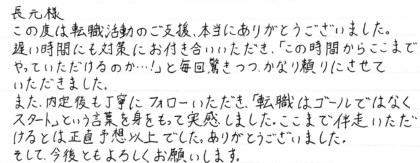 長元様
この度は転職活動のご支援、本当にありがとうございました。
遅い時間にも対策にお付き合いいただき、「この時間からここまで
やっていただけるのか…!」と毎回驚きつつ、かなり頼りにさせて
いただきました。
また、内定後も丁寧にフォローいただき、「転職はゴールではなく
スタート」という言葉を身をもって実感しました。ここまで伴走いただ
けるとは正直予想以上でした。ありがとうございました。
そして、今後ともよろしくお願いします。